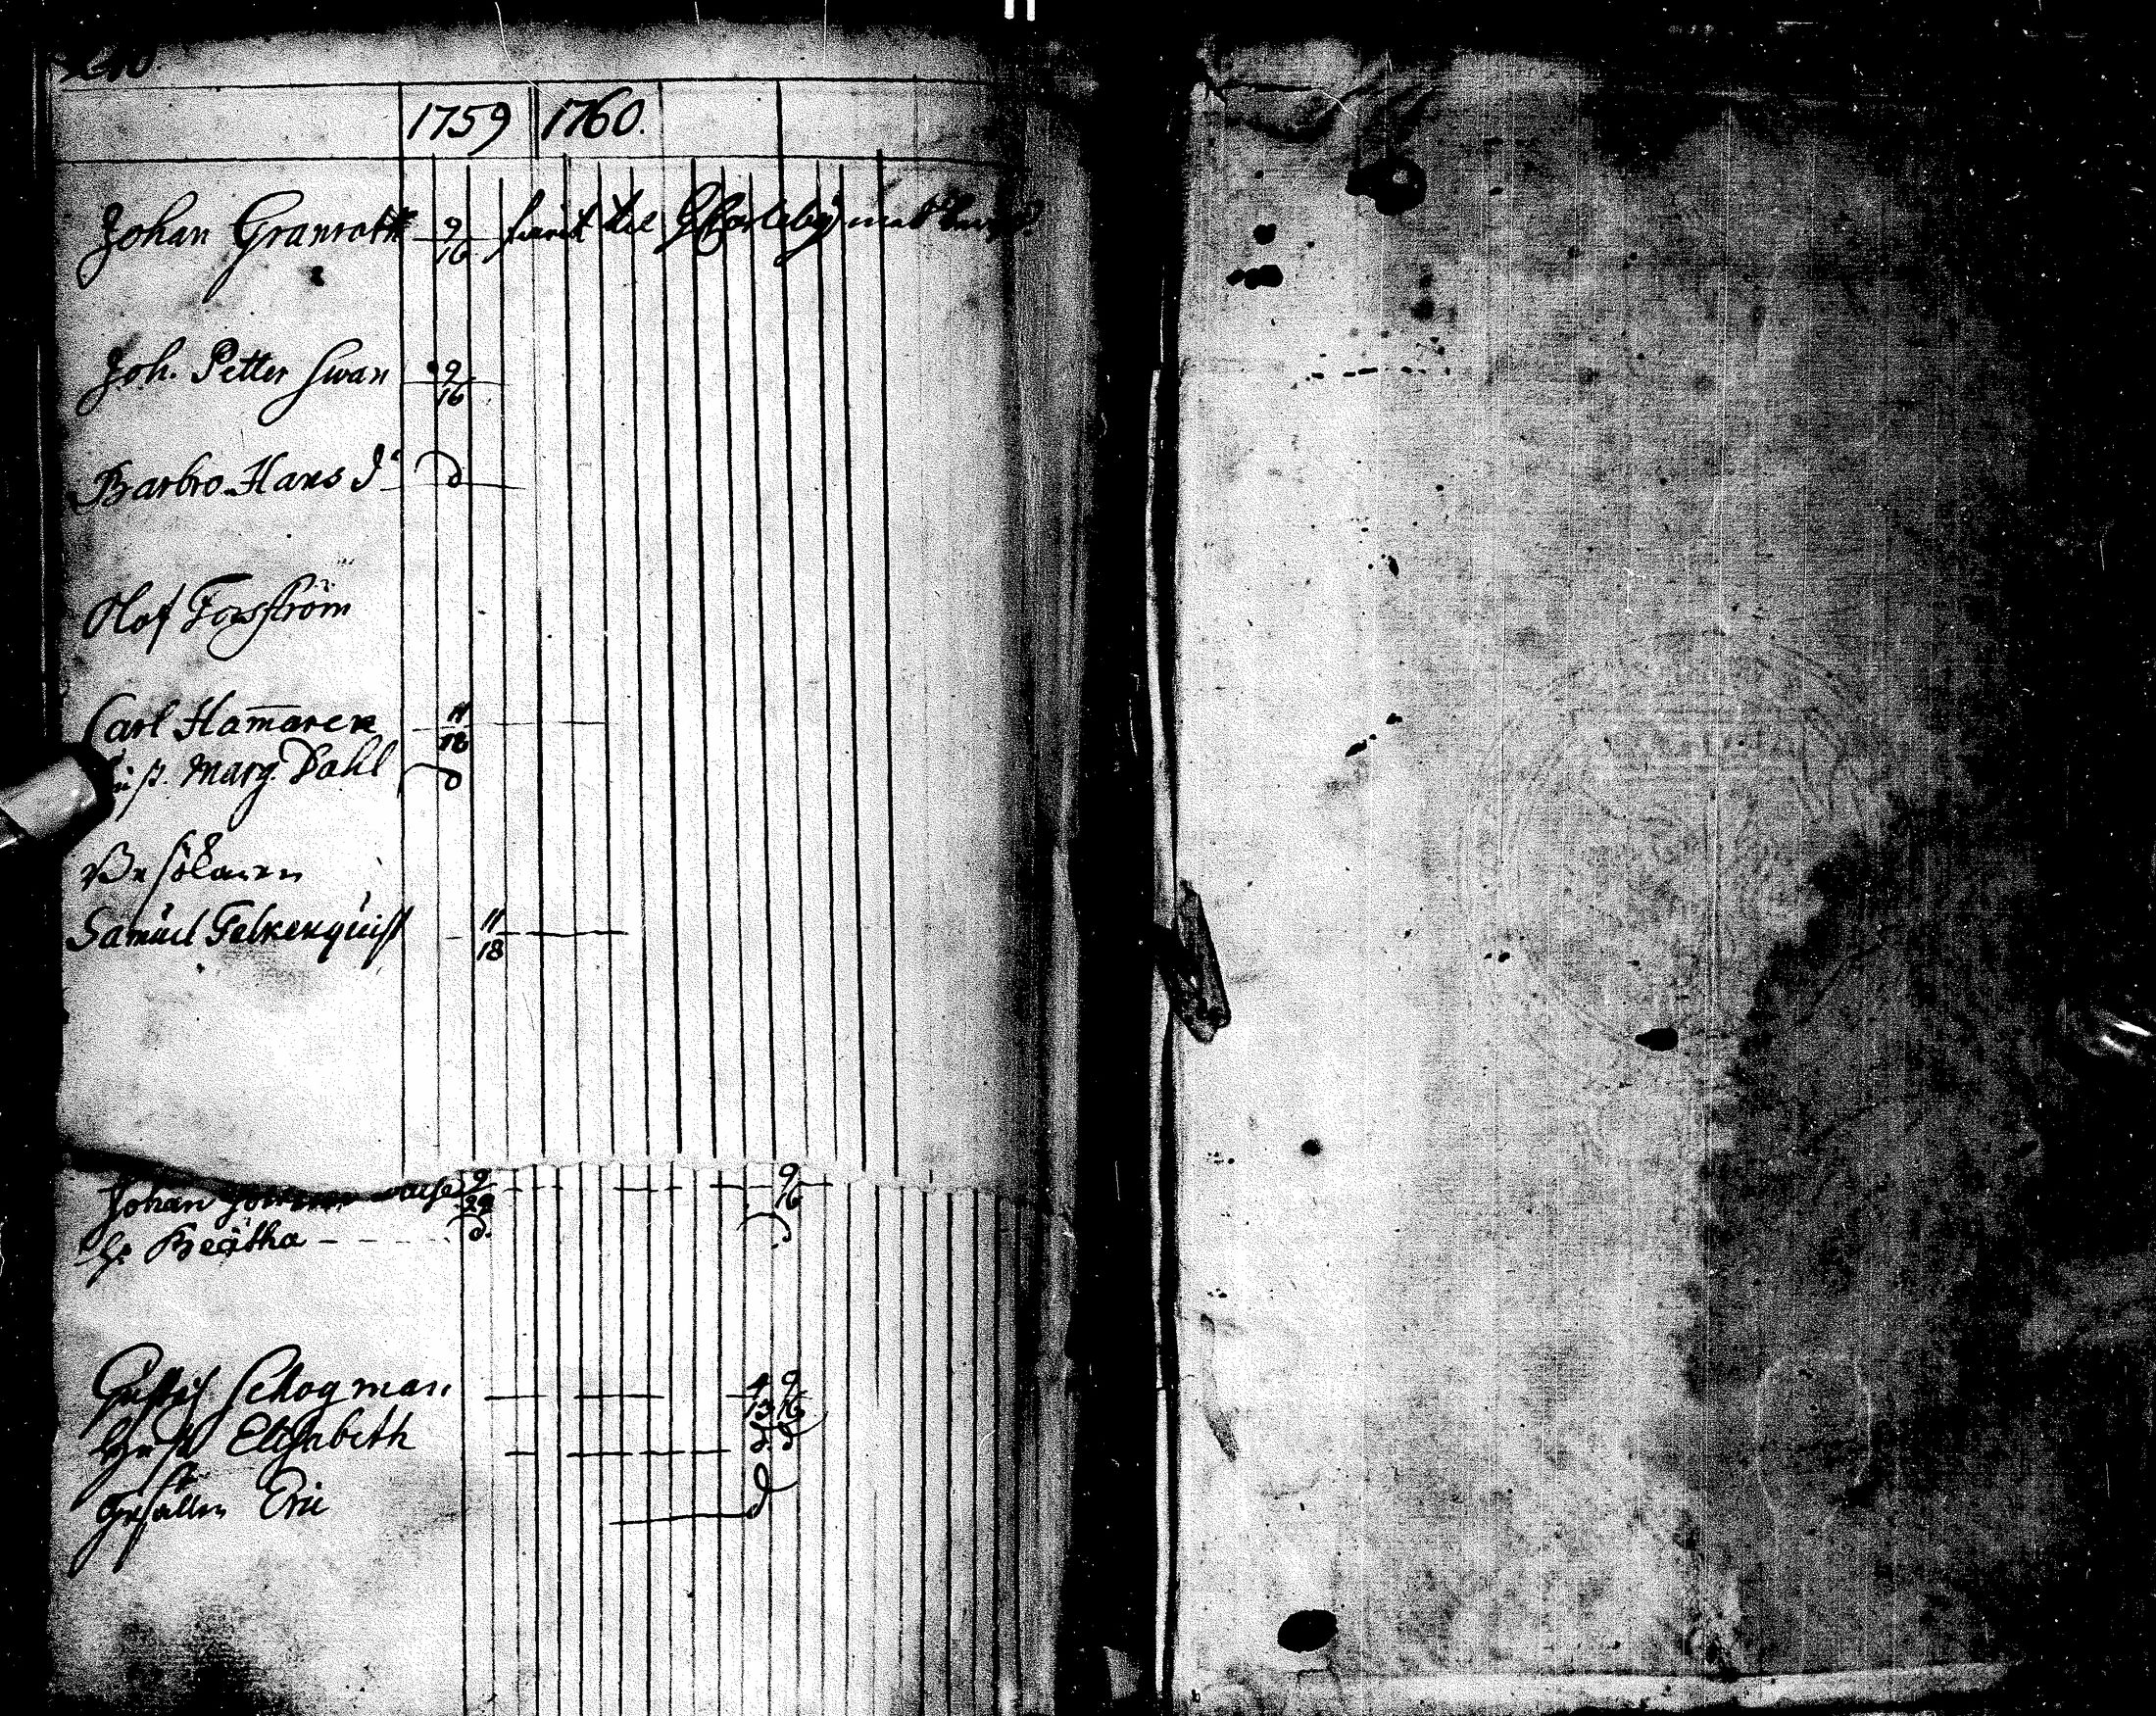 1759 1760.
Johan Granroth 9/16 til G Carleby med
Joh. Petter Swan 9/16
Barbro Hans dr d
Olof Forsström
Carl Ham̄aren 11/18
Marg. Dahl d
Besökaren
Samuel Felkenquist 11/18
Johan 9/29 9/16
h. Beätha d. d
Gustaf Schogman 4/13 9/16
hustr Elisabeth d d
Gesällen Eric d